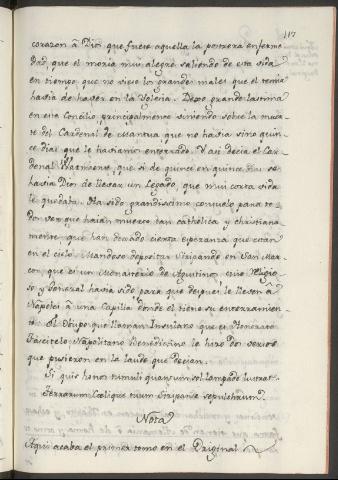 117
corazon â Dios que fuese aquella la postrera enferme
dad, que el moria mui alegre saliendo de esta vida
en tiempo, que no viese los grandes males que el temia
havia de haver en la Yglesia. Dexo grande lastima
en este Concilio, principalmente viniendo sobre la muer
te del Cardenal de Mantua que no havia sino quin
ce dias que le haviamos enterrado. Y asi decia el Car
denal que si de quince en quince dias se
havia Dios de llevar un Legado, que mui corta vida
le quedava. Ha sido grandissimo consuelo para to
dos ver que haian muerto tan catholica y christiana
mente, que han dexado cierta esperanza que estan
en el cielo. Mandose depositar Seripando en San Mar
cos, que es un Monasterio de Agustinos, cuio Religio
so, y General havia sido, para que despues le lleven â
Napoles â una Capilla donde el tiene su enterramien
to. El Obispo que llaman Insulano que es Honorato
Fascitelo Napolitano Benedictino le hizo dos versos
que pusieron en la laude que decian.
Si quis honos tumuli quantum sol lampade lustrat
Terrarum Cœlique tuum Seripande sepulchrum.
Nota
Aqui acaba el primer tomo en el Original